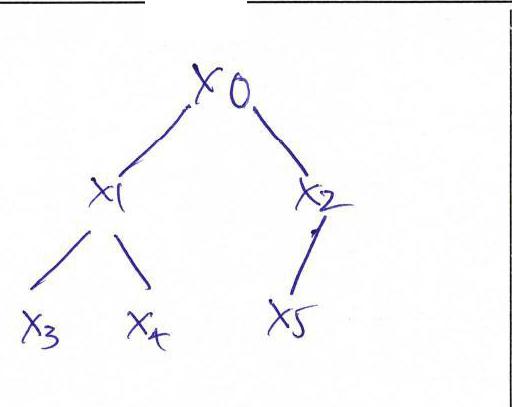 X0
X1 X2
X3 X4 X5